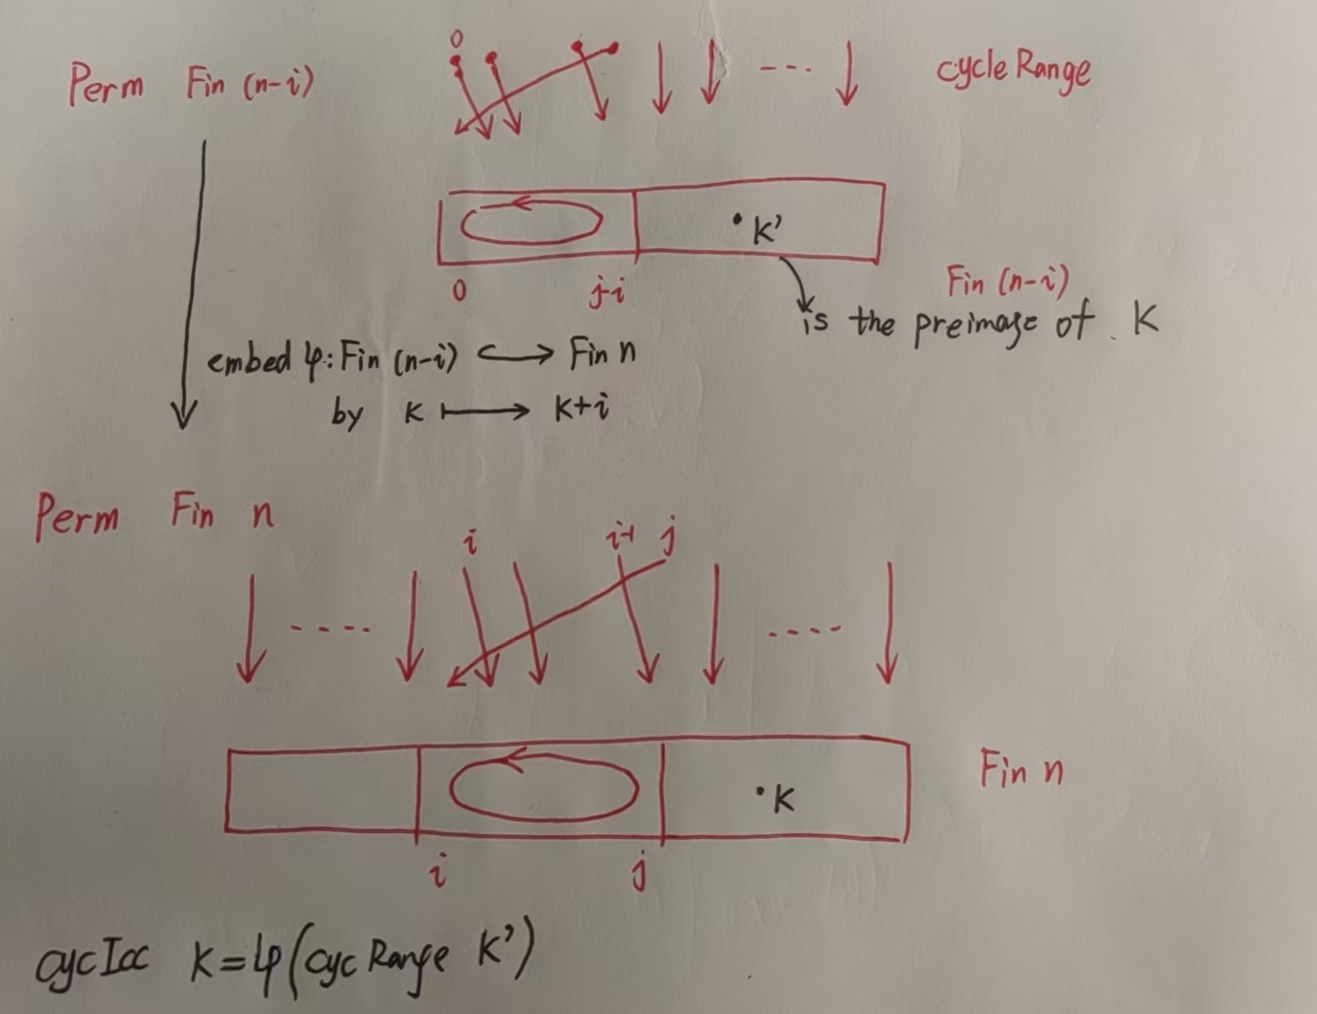 0
Perm Fin (n-i) cycle Range
K'
0 j-i Fin (n-i)
is the preimage of. K
embed φ: Fin (n-i) ↪ Fin n
by K ⟼ K+i
Perm Fin n
i i-1 j
Fin n
K
i j
cycIcc K=φ(cyc Range K')